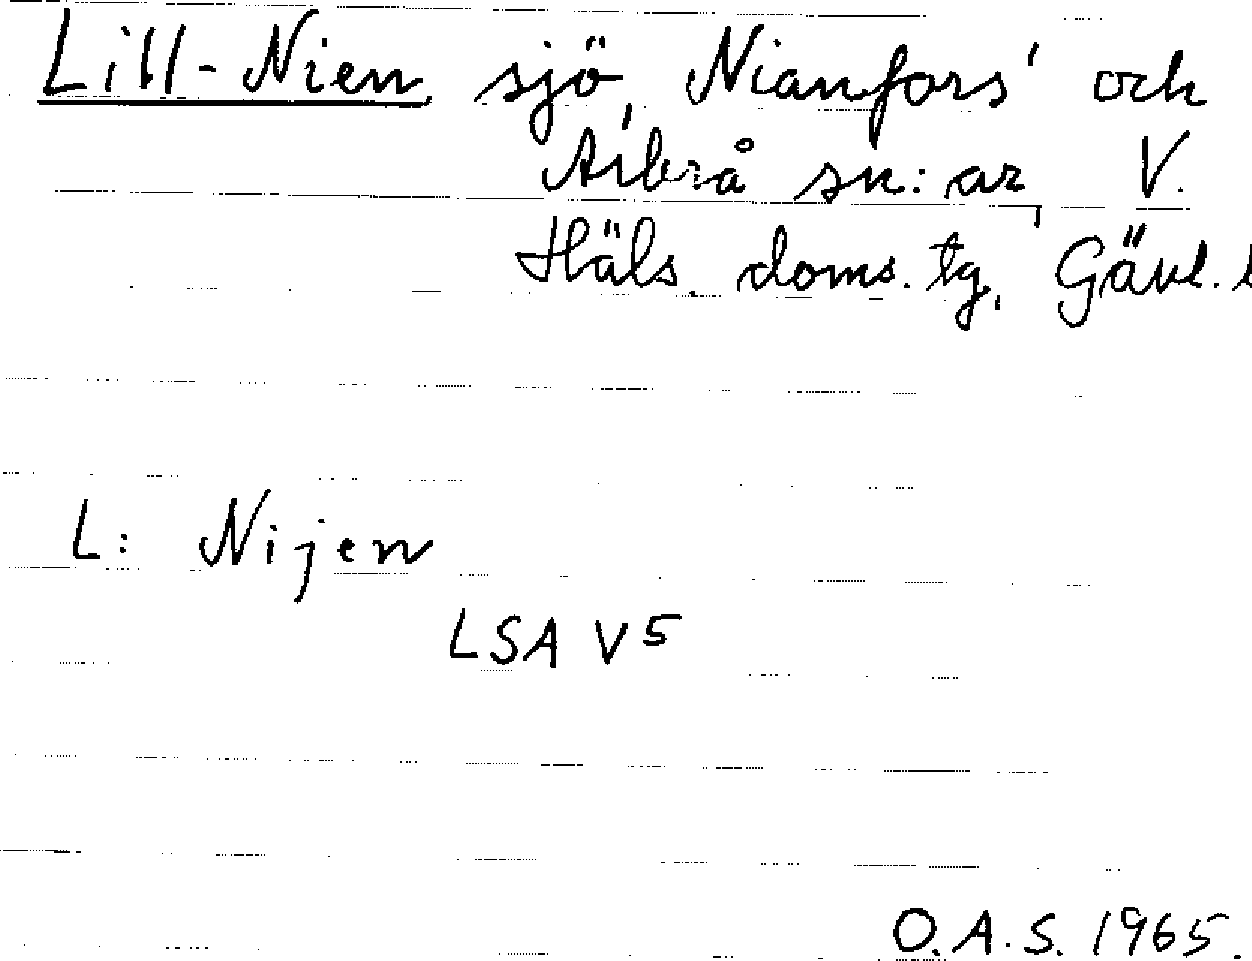 Lill-Nien, sjö, Nianfors' och
Arbrå sn:ar, V.
Häls. doms. tg, Gävl. l
L: Nijen
LSA V5
O.A.S. 1965.